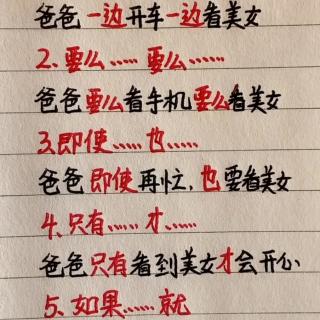 爸爸一边开车一边看美女
2.要么…… 要么……
爸爸要么看手机要么看美女
3.即使…… 也……
爸爸即使再忙,也要看美女
4、只有…… 才……
爸爸只有看到美女才会开心
5、如果…… 就